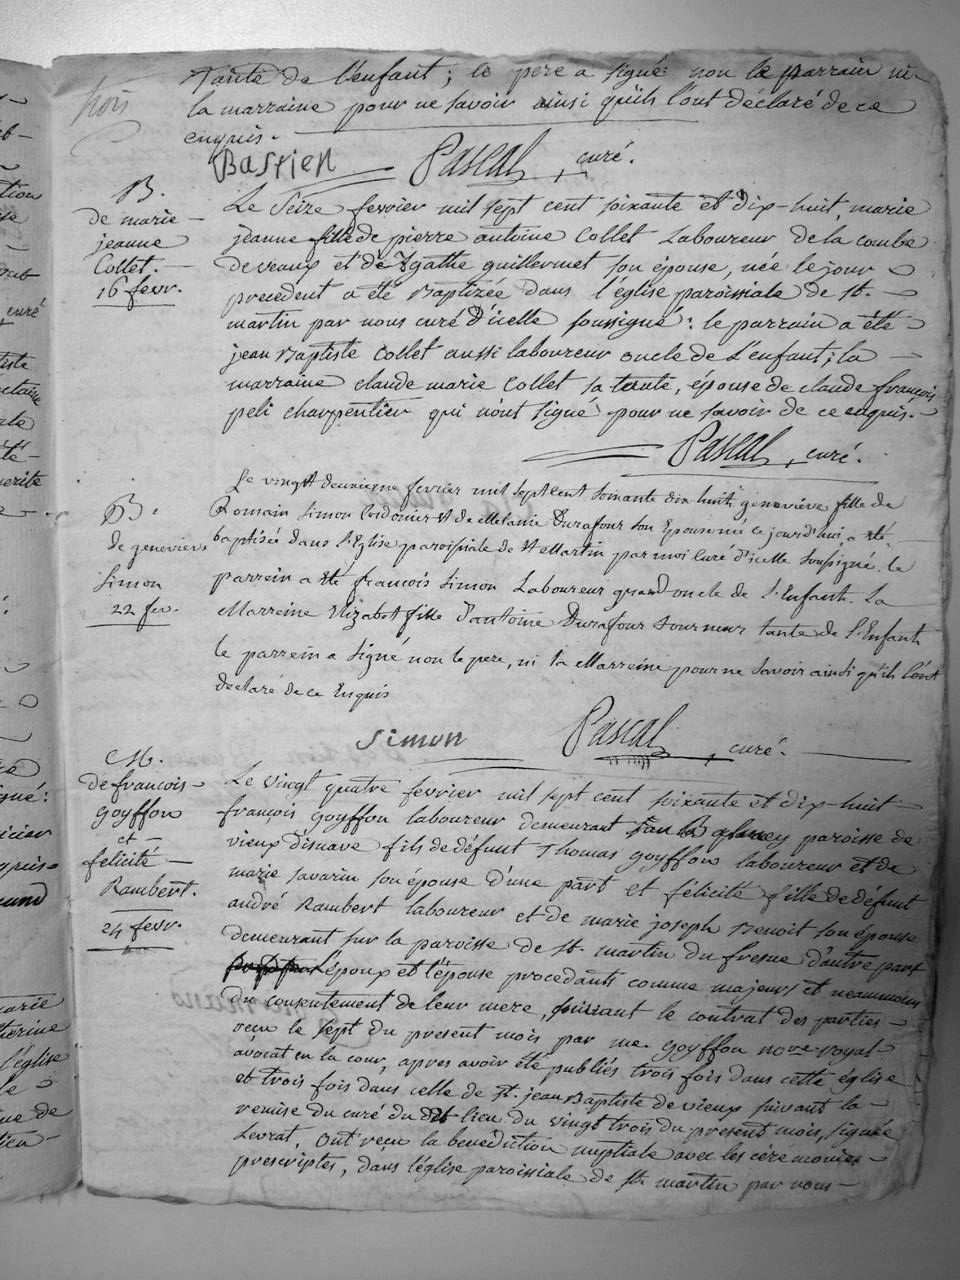 trois
Tante de l'enfant; le pere a signé non le parrain ni
la marraine pour ne savoir ainsi qu'ils l'ont déclaré de ce
enquis.
Bastien Pascal, curé.
B.
de marie
jeanne
Collet.
16 fevr.
Le Seize fevrier mil sept cent soixante et dix-huit, marie
jeanne fille de pierre antoine Collet Laboureur de la combe
de veaux et de Agathe guillermet son épouse, née le jour
precedent a été Baptizée dans l'église paroissiale de st.
martin par nous curé d'icelle soussigné: le parrain a été
jean Baptiste Collet aussi laboureur oncle de L'enfant; la
marraine claude marie Collet sa tante, épouse de claude françois
peli charpentier qui n'ont signé pour ne savoir de ce enquis.
Pascal, curé.
B.
de genevieve
Simon
22 fev.
Le vingt deuxieme fevrier mil sept cent soixante dix huit geneviève fille de
Romain Simon Cordonier et de Melanie Durafour son Epouse né ce jourd'hui, a été
baptisée dans l'Eglise paroissiale de St Martin par moi Curé d'icelle soussigné. le
parrein a été françois Simon Laboureur grand oncle de l'Enfant. La
Marreine Elizabet fille d'antoine Durafour tourneur tante de l'Enfant
le parrein a signé non le pere, ni la Marreine pour ne savoir ainsi qu'ils l'ont
déclaré de ce Enquis
Simon Pascal, curé.
M.
de francois
goyffon
et
felicité
Rambert.
24 fevr.
Le vingt quatre fevrier mil sept cent soixante et dix-huit
françois goyffon laboureur demeurant paroisse de
vieux d'isnave fils de défunt Thomas goyffon laboureur et de
marie savarin son épouse d'une part et félicité fille de défunt
andré Rambert laboureur et de marie joseph Benoit son épouse
demeurant sur la paroisse de st. martin du fresne d'autre part
L'époux et l'épouse procedants comme majeurs et neammoins
du consentement de leur mere, suivant le contrat des parties
recu le sept du present mois par me. goyffon nore royal
avocat en la cour, apres avoir été publiés trois fois dans cette église
et trois fois dans celle de st. jean Baptiste de vieux suivant la
remise du curé du dit lieu du vingt trois du present mois, signée
Levrat, ont reçu la benediction nuptiale avec les ceremonies
prescriptes, dans l'église paroissiale de st. martin par nous